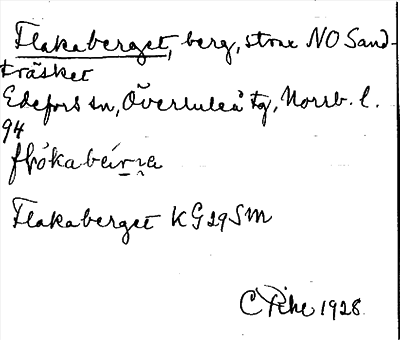 Flakaberget, berg, store NO Sand-
träsket
Edefors sn, Överluleå tg, Norrb. l.
94
Flakaberget KG29SM
C Pihl 1928